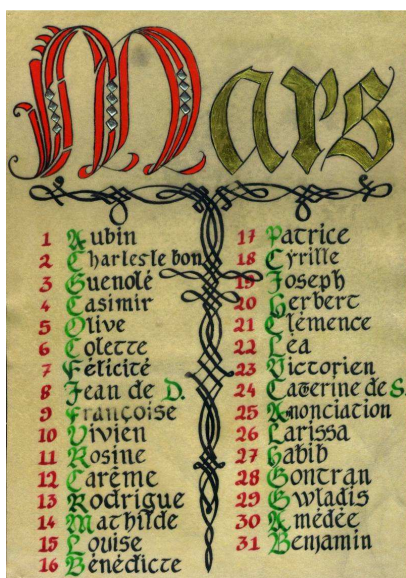 Mars
1 Aubin
2 Charles le bon
3 Guenolé
4 Casimir
5 Olive
6 Colette
7 Félicité
8 Jean de D.
9 Françoise
10 Vivien
11 Rosine
12 Carême
13 Rodrigue
14 Mathilde
15 Louise
16 Bénédicte
17 Patrice
18 Cyrille
19 Joseph
20 Herbert
21 Clémence
22 Léa
23 Victorien
24 Caterine de S.
25 Anonciation
26 Larissa
27 Habib
28 Gontran
29 Gwladis
30 Amédée
31 Benjamin